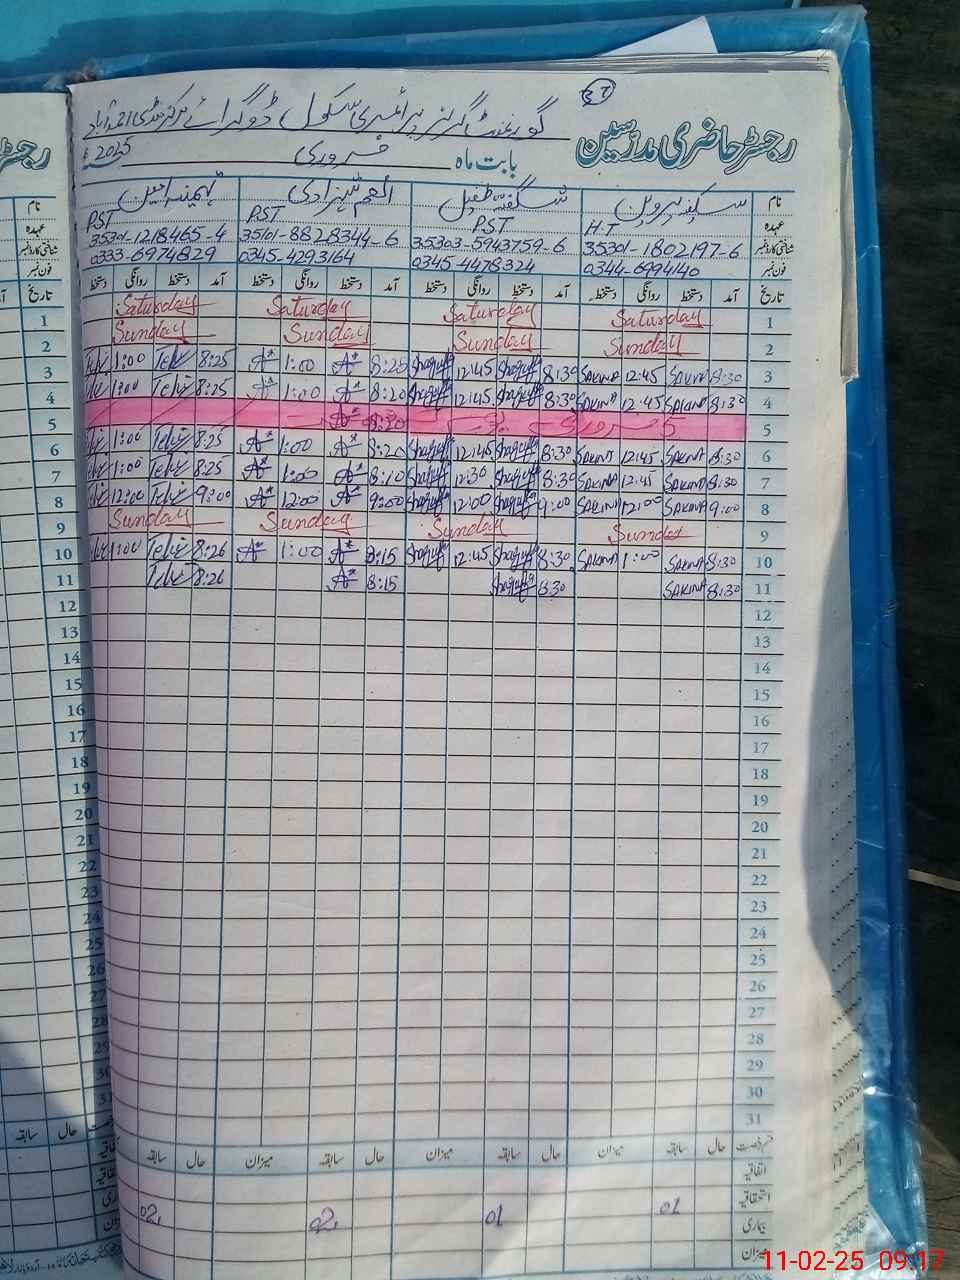 37
گورنمنٹ گرلز پرائمری سکول ڈوگرائے مرکز منڈی احمد آباد
رجسٹر حاضری مدرسین
بابت ماہ فروری 2025ء
نام سکینہ پروین شگفتہ طفیل انعم شہزادی تہمینہ امین
عہدہ H.T PST PST PST
شناختی کارڈ نمبر 35301-1802197-6 35303-5943759-6 35101-8828344-6 35301-1218465-4
فون نمبر 0344-6994140 0345-4478324 0345-4293164 0333-6974829
تاریخ آمد دستخط روانگی دستخط آمد دستخط روانگی دستخط آمد دستخط روانگی دستخط آمد دستخط روانگی دستخط
1 Saturday Saturday Saturday Saturday 1
2 Sunday Sunday Sunday Sunday 2
3 8:30 SAKINA 12:45 SAKINA 8:30 Shagufta 12:45 Shagufta 8:25 A* 1:00 A* 8:25 1:00 3
4 8:30 SAKINA 12:45 SAKINA 8:30 Shagufta 12:45 Shagufta 8:20 A* 1:00 A* 8:25 1:00 4
5 A* 8:20 5
6 8:30 SAKINA 12:45 SAKINA 8:30 Shagufta 12:45 Shagufta 8:20 A* 1:00 A* 8:25 1:00 6
7 8:30 SAKINA 12:45 SAKINA 8:30 Shagufta 12:30 Shagufta 8:10 A* 1:00 A* 8:25 1:00 7
8 9:00 SAKINA 12:00 SAKINA 9:00 Shagufta 12:00 Shagufta 9:00 A* 12:00 A* 9:00 12:00 8
9 Sunday Sunday Sunday Sunday 9
10 8:30 SAKINA 1:00 SAKINA 8:30 Shagufta 12:45 Shagufta 8:15 A* 1:00 A* 8:26 1:00 10
11 8:30 SAKINA 8:30 Shagufta 8:15 A* 8:26 11
12 12
13 13
14 14
15 15
16 16
17 17
18 18
19 19
20 20
21 21
22 22
23 23
24 24
25 25
26 26
27 27
28 28
29 29
30 30
31 31
حال سابقہ میزان حال سابقہ میزان حال سابقہ میزان حال سابقہ
اتفاقیہ
استحقاقیہ 01 01 02 02
بیماری
میزان
11-02-25 09:17